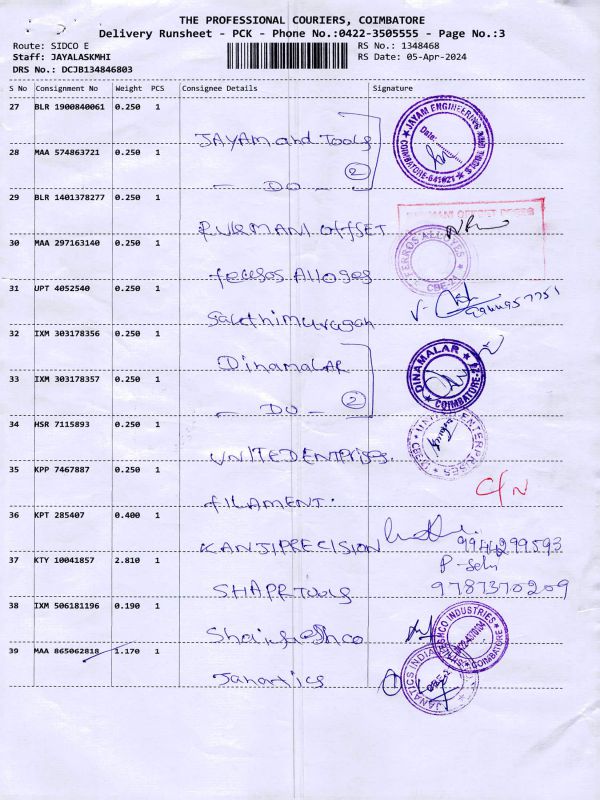 THE PROFESSIONAL COURIERS, COIMBATORE
Delivery Runsheet - PCK - Phone No.:0422-3505555 - Page No.:3
Route: SIDCO E
RS No.: 1348468
Staff: JAYALASKMHI
RS Date: 05-Apr-2024
DRS No.: DCJB134846803
S No Consignment No Weight PCS Consignee Details Signature
27 BLR 1900840061 0.250 1
JAYAM and Tools
JAYAM ENGINEERING AND TOOLS
Date:
COIMBATORE-641021
28 MAA 574863721 0.250 1
- DO - 2
29 BLR 1401378277 0.250 1
RUKMANI OFFSET
RUKMANI OFFSET PRESS
30 MAA 297163140 0.250 1
ferros Alloges
FERROS ALLOYES
CBE-21
31 UPT 4052540 0.250 1
Sakthimurugan
32 IXM 303178356 0.250 1
DinamaLAR
DINAMALAR
COIMBATORE
33 IXM 303178357 0.250 1
- DO - 2
34 HSR 7115893 0.250 1
UNITED ENTPRISES.
UNITED ENTERPRISES
35 KPP 7467887 0.250 1
FILAMENT.
C/N
36 KPT 285407 0.400 1
KANJI PRECISION
9944299593
37 KTY 10041857 2.810 1
SHAPR Tools
9787370209
38 IXM 506181196 0.190 1
INDUSTRIES
COIMBATORE
39 MAA 865062818 1.170 1
Janatics
JANATICS INDIA